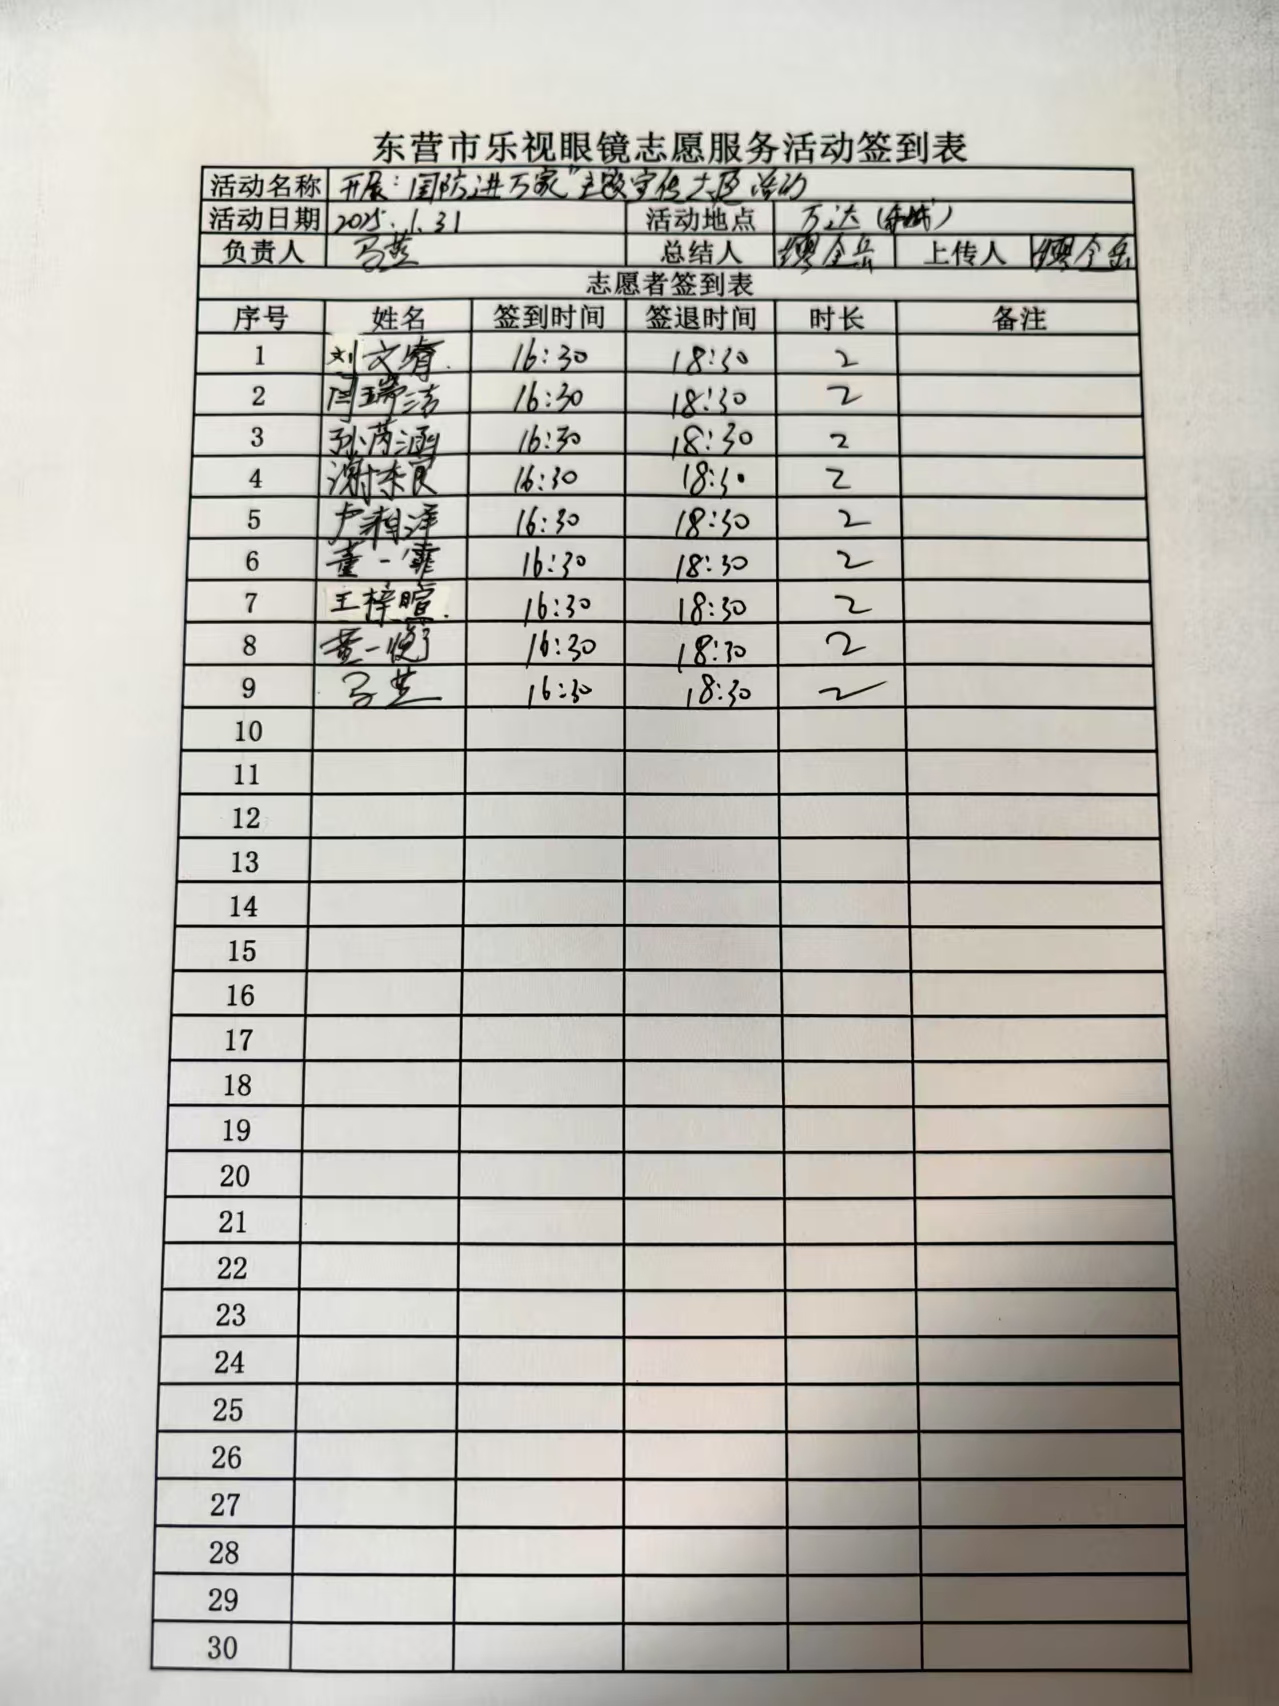 东营市乐视眼镜志愿服务活动签到表
活动名称 开展:国防进万家"主题宣传志愿活动
活动日期 2025.1.31 活动地点 万达(东城)
负责人 马芝 总结人 缪金岳 上传人 缪金岳
志愿者签到表
序号 姓名 签到时间 签退时间 时长 备注
1 刘文睿. 16:30 18:30 2
2 闫瑞洁 16:30 18:30 2
3 孙芮涵 16:30 18:30 2
4 谢 16:30 18:30 2
5 卢 泽 16:30 18:30 2
6 董一霏 16:30 18:30 2
7 王梓暄. 16:30 18:30 2
8 黄一悦 16:30 18:30 2
9 马芝 16:30 18:30 2
10
11
12
13
14
15
16
17
18
19
20
21
22
23
24
25
26
27
28
29
30